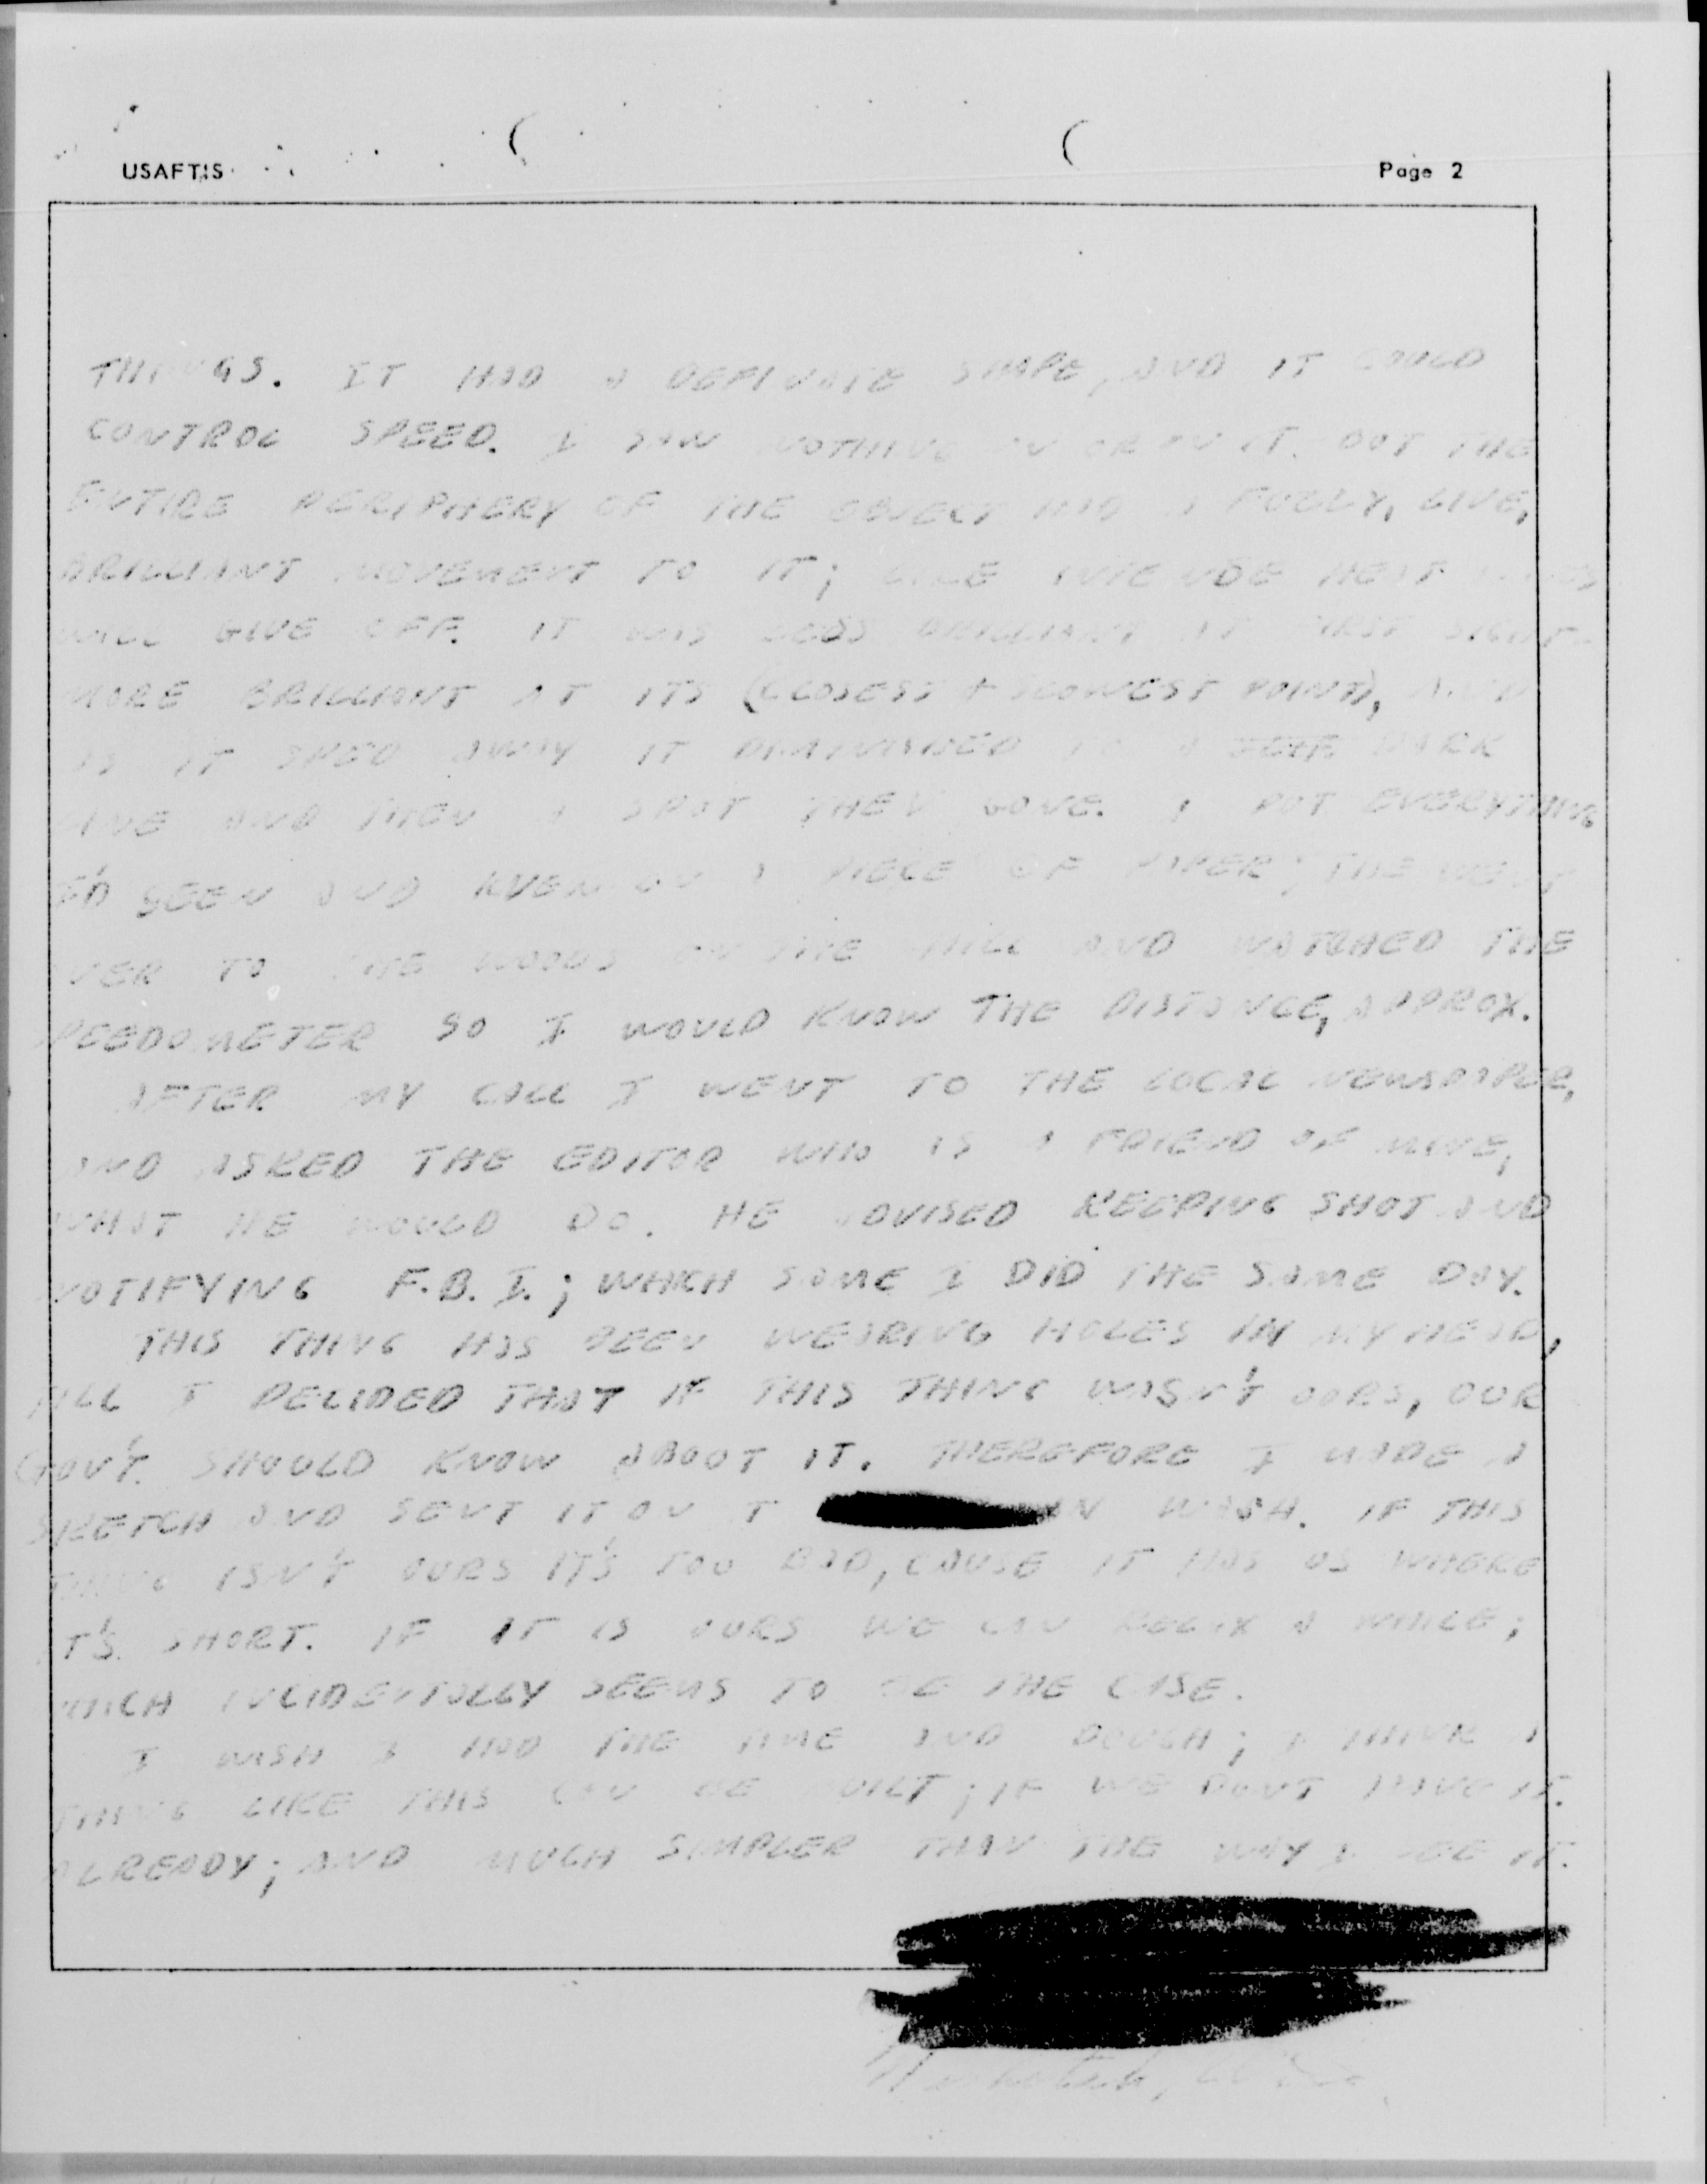 USAFTIS Page 2
THINGS. IT HAD A DEFINATE SHAPE, AND IT COULD
CONTROL SPEED. I SAW NOTHING IN OR ON IT. BUT THE
ENTIRE PERIPHERY OF THE OBJECT HAD A FUZZY, LIVE,
BRILLIANT MOVEMENT TO IT; LIKE INTENSE HEAT
WILL GIVE OFF. IT WAS LESS BRILLIANT AT FIRST SIGHT-
MORE BRILLIANT AT ITS (CLOSEST + SLOWEST POINT), AND
AS IT SPED AWAY IT DIMINISHED TO A DARK
LINE AND THEN A SPOT THEN GONE. I PUT EVERYTHING
I'D SEEN AND KNEW ON A PIECE OF PAPER; THE WENT
VER TO THE WOODS ON THE HILL AND WATCHED THE
PEEDOMETER SO I WOULD KNOW THE DISTANCE, APPROX.
AFTER MY CALL I WENT TO THE LOCAL NEWSPAPER,
AND ASKED THE EDITOR WHO IS A FRIEND OF MINE,
WHAT HE WOULD DO. HE ADVISED KEEPING SHUT AND
NOTIFYING F.B.I.; WHICH SAME I DID THE SAME DAY.
THIS THING HAS BEEN WEARING HOLES IN MY HEAD,
TILL I DECIDED THAT IF THIS THING WASN'T OURS, OUR
GOV'T. SHOULD KNOW ABOUT IT. THEREFORE I MADE A
SKETCH AND SENT IT ON T IN WASH. IF THIS
THING ISN'T OURS IT'S TOO BAD, CAUSE IT HAS US WHERE
T'S SHORT. IF IT IS OURS WE CAN RELAX A WHILE;
WHICH INCIDENTALLY SEEMS TO BE THE CASE.
I WISH I HAD THE TIME AND DOUGH; I THINK A
THING LIKE THIS CAN BE BUILT; IF WE DON'T HAVE IT.
ALREADY; AND MUCH SIMPLER THAN THE WAY I SEE IT.